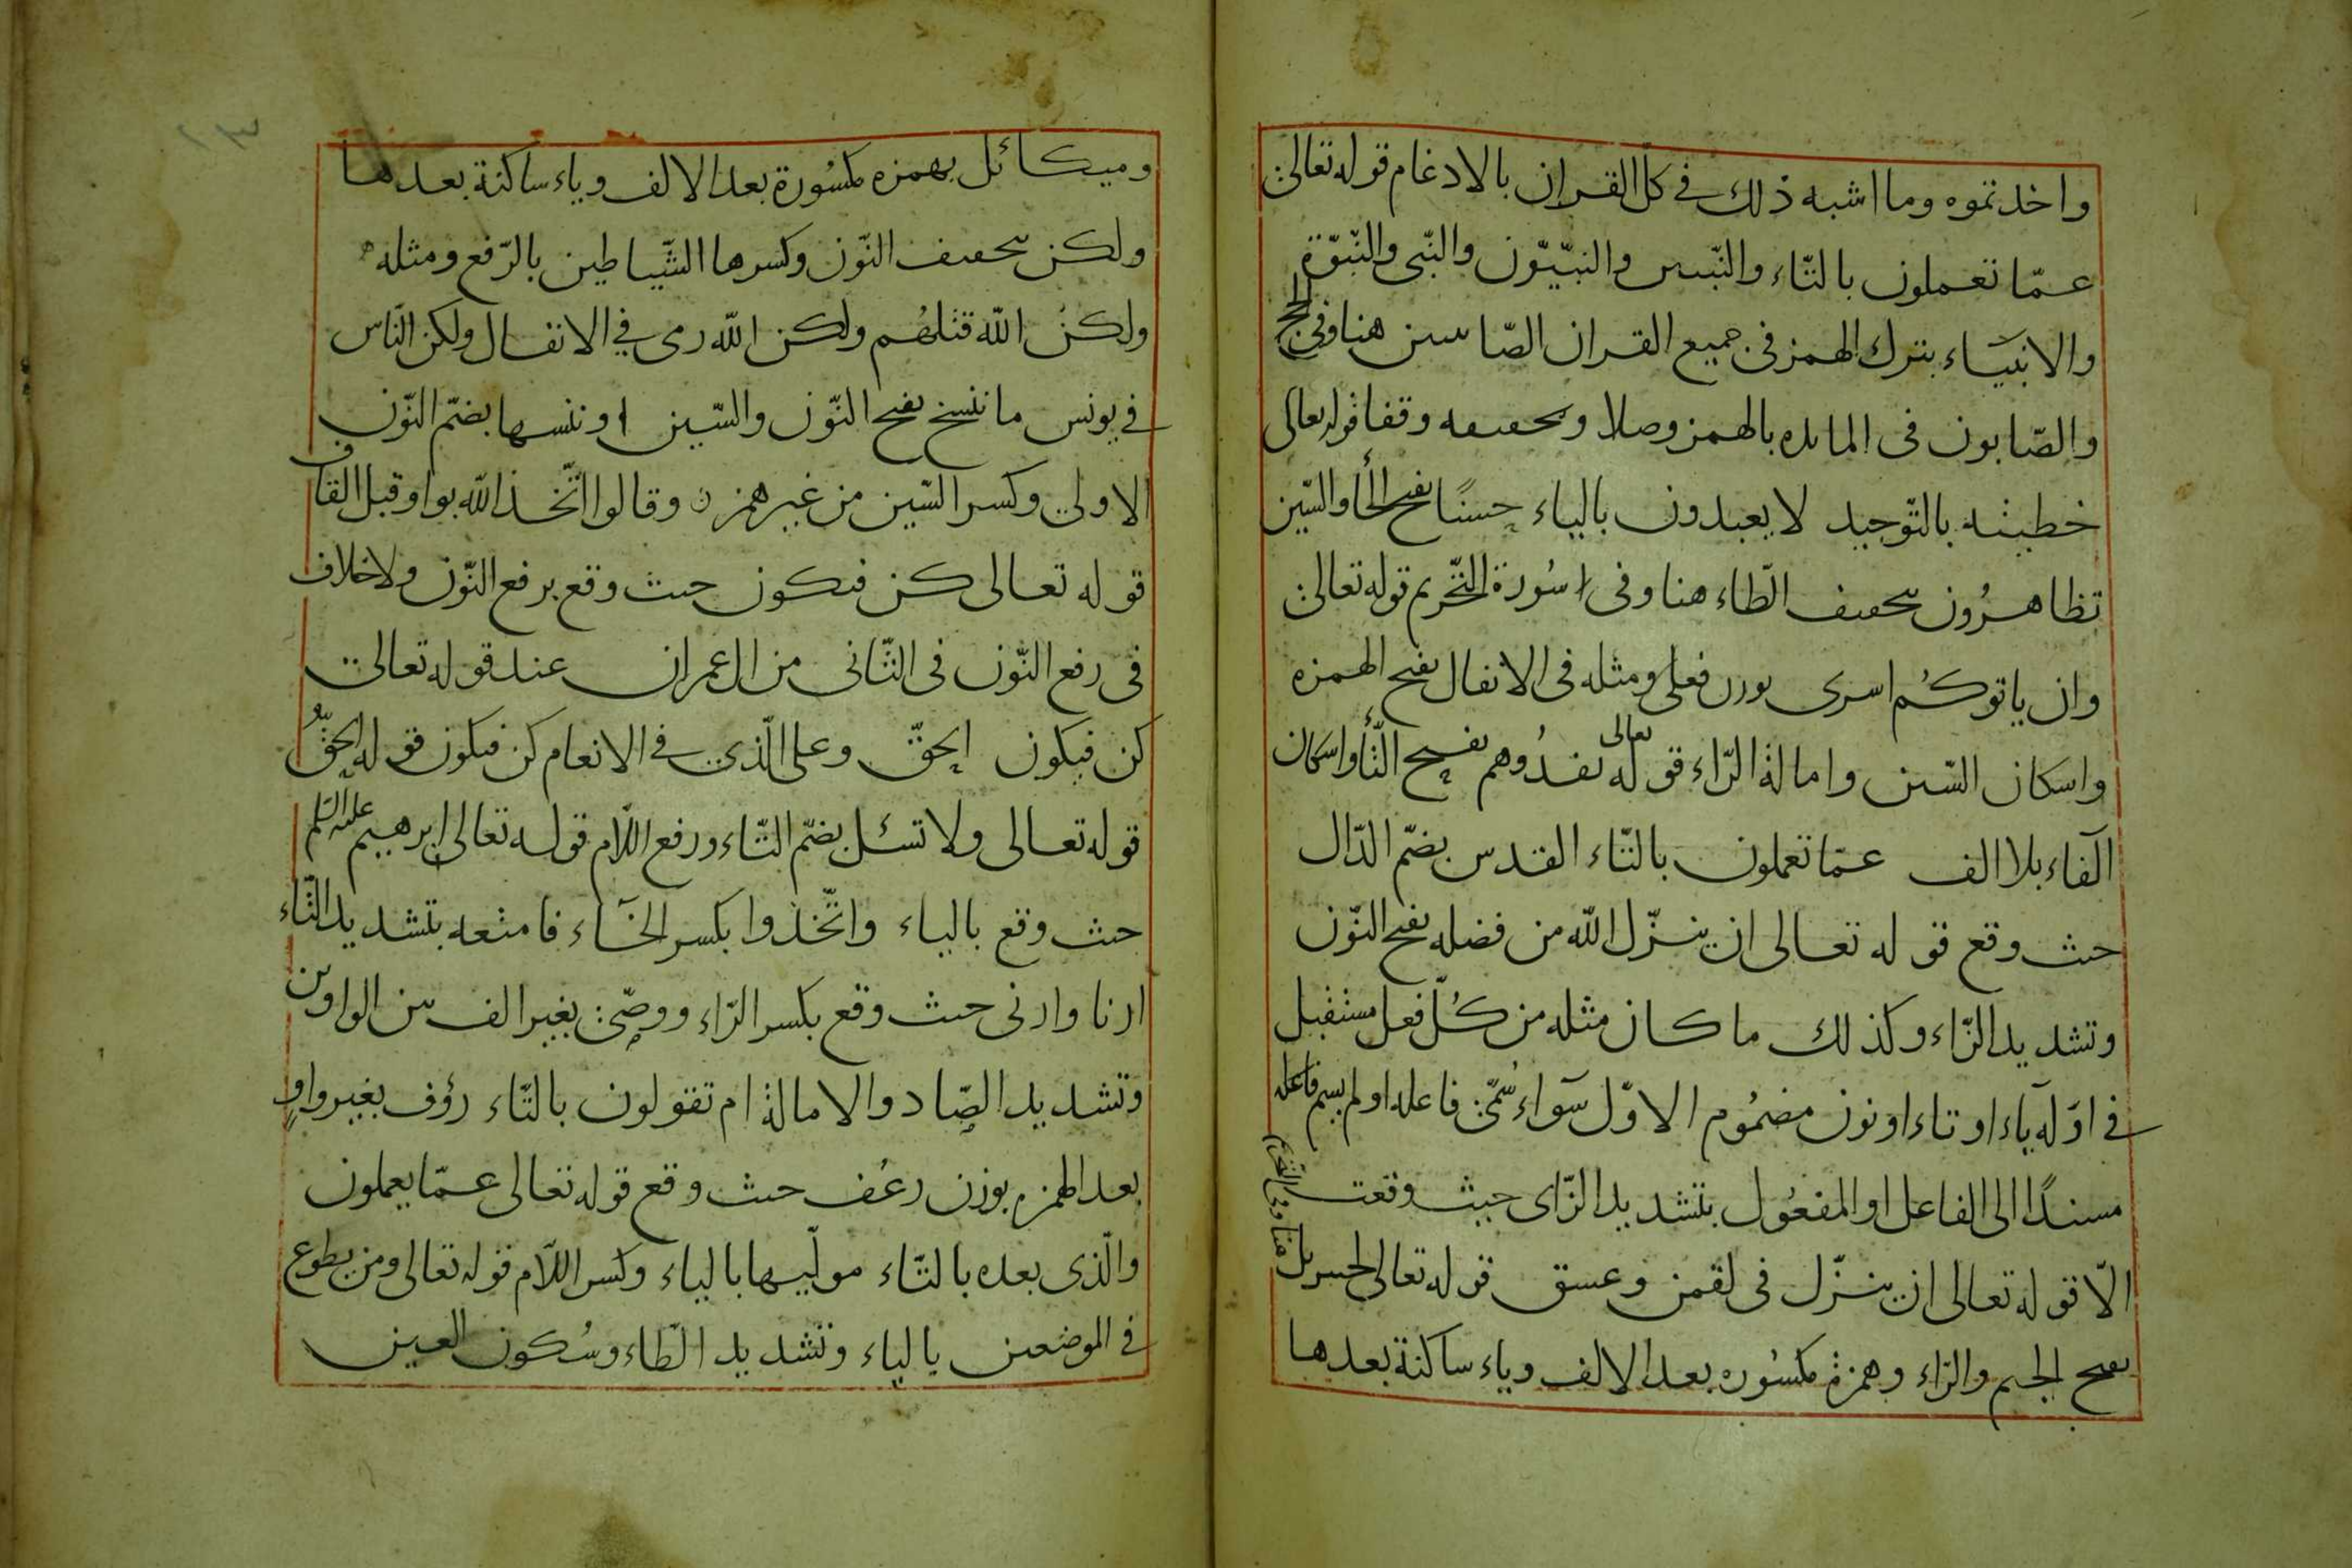 واخذتموه وما اشبه ذلك في كلّ القران بالادغام قوله تعالى
عمّا تعملون بالتّاء والنّبيين والنبيّون والنّبي والنّبوّة
والانبياء بترك الهمز في جميع القران الصّابين هنا وفي الحج
والصّابون في المائده بالهمز وصلا وتخفيفه وقفا قوله تعالى
خطيئته بالتّوحيد لا يعبدون بالياء حسنًا بفتح الحاء والسّين
تظاهرُون بتخفيف الظاء هنا وفي سُورة التّحريم قوله تعالى
وان ياتوكُم اسرى بوزن فعلى ومثله في الانفال بفتح الهمزه
واسكان السّين وامالة الرّاء قوله تعالى تفدُوهم بفتح التّاء واسكان
الفاء بلا الف عمّا تعملون بالتّاء القدس بضمّ الدّال
حيث وقع قوله تعالى ان ينزّل الله من فضله بفتح النّون
وتشديد الزّاء وكذلك ما كان مثله من كُلّ فعل مستقبل
في اوّله ياء او تاء او نون مضمُوم الاوّل سوآء سُمّي فاعله او لم يسم فاعله
مسندًا الى الفاعل او المفعُول بتشديد الزّاى حيث وقعت
الّا قوله تعالى ان ينزّل في لقمن وعسق قوله تعالى لجبريل هنا وفي التحريم
بفتح الجيم والرّاء وهمزة مكسُوره بعد الالف وياء ساكنة بعدها
وميكائل بهمزه مكسُورة بعد الالف وياء ساكنة بعدها
ولكن بتخفيف النّون وكسرها الشّياطين بالرّفع ومثله
ولكن الله قتلهُم ولكن الله رمى في الانفال ولكن النّاس
في يونس ما ننسخ بفتح النّون والسّين او ننسها بضمّ النّون
الاولى وكسر السّين من غير همز وقالوا اتّخذ الله بواو قبل القاف
قوله تعالى كن فيكون حيث وقع برفع النّون ولا خلاف
في رفع النّون في الثّاني من ال عمران عند قوله تعالى
كن فيكون الحقّ وعلى الّذي في الانعام كن فيكون قوله الحقُّ
قوله تعالى ولا تسئل بضمّ التّاء ورفع اللّام قوله تعالى ابرهيم عليه السّلم
حيث وقع بالياء واتّخذوا بكسر الخآء فامتعه بتشديد التّاء
ارنا وارنى حيث وقع بكسر الرّاء ووصّى بغير الف بين الواوين
وتشديد الصّاد والامالة ام تقولون بالتّاء رؤف بغير واو
بعد الهمزه بوزن رعُف حيث وقع قوله تعالى عمّا يعملون
والّذى بعده بالتّاء مولّيها بالياء وكسر اللّام قوله تعالى ومن يطوع
في الموضعين بالياء وتشديد الطّاء وسُكون العين